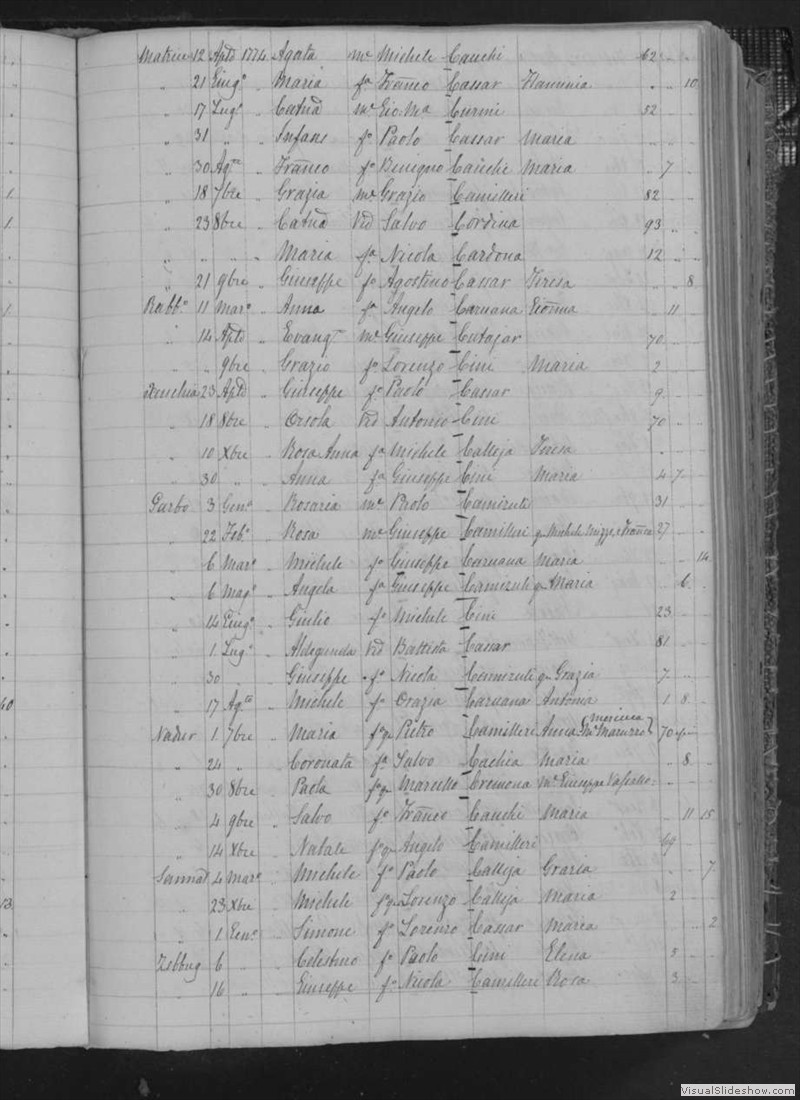 Matrice 12 Aple 1774 Agata me Michele Cauchi 62
" 21 Giugo " Maria fa Franco Cassar Flaminia 10
" 17 Lugo " Catna me Gio Ma Curmi 52
" 31 " " Infans fo Paolo Cassar Maria
" 30 Agto " Franco fo Benigno Cauchi Maria 7
" 18 7bre " Grazia me Grazio Camilleri 82
" 23 8bre " Catna Vid Salvo Cordina 93
" " " " Maria fa Nicola Cardona 12
" 21 9bre " Giuseppe fo Agostino Cassar Teresa 8
Rabbo 11 Maro " Anna fa Angelo Caruana Gioanna 11
" 14 Aple " Evang me Giuseppe Cutajar 70
" " 9bre " Grazio fo Lorenzo Cini Maria 2
Xeuchia 23 Aple " Giuseppe fo Paolo Cassar 9
" 18 8bre " Orsola Vid Antonio Cini 70
" 10 Xbre " Rosa Anna fa Michele Calleja Teresa
" 30 " " Anna fa Giuseppe Cini Maria 4 7
Garbo 3 Geno " Rosaria me Paolo Camizuli 31
" 22 Febo " Rosa me Giuseppe Camilleri qm Michele Mizzi e Franca 27
" 6 Maro " Michele fo Giuseppe Caruana Maria 14
" 6 Mago " Angela fa Giuseppe Camizuli qm Maria 6
" 14 Giugo " Giulio fo Michele Cini 23
" 1 Lugo " Aldegunda Vid Battista Cassar 81
" 30 " Giuseppe fo Nicola Camizuli qm Grazia 7
" 17 Agto " Michele fo Orazio Caruana Antonia 1 8
Nadur 1 7bre " Maria fa qm Pietro Camilleri 70
" 24 " " Coronata fa Salvo Cachia Maria 8
" 30 8bre " Paola fa qm Marcello Cremona me Giuseppe Vassallo
" 4 9bre " Salvo fo Franco Cauchi Maria 11 15
" 14 Xbre " Natale fo qm Angelo Camilleri 69
Sannat 4 Maro " Michele fo Paolo Calleja Grazia 7
" 23 Xbre " Michele fo qm Lorenzo Calleja Maria 2
" 1 Geno " Simone fo Lorenzo Cassar Maria 2
Zebbug 6 " " Celestino fo Paolo Cini Elena 5
" 16 " " Giuseppe fo Nicola Camilleri Rosa 3
1
1
1
40
13
VisualSlideshow.com